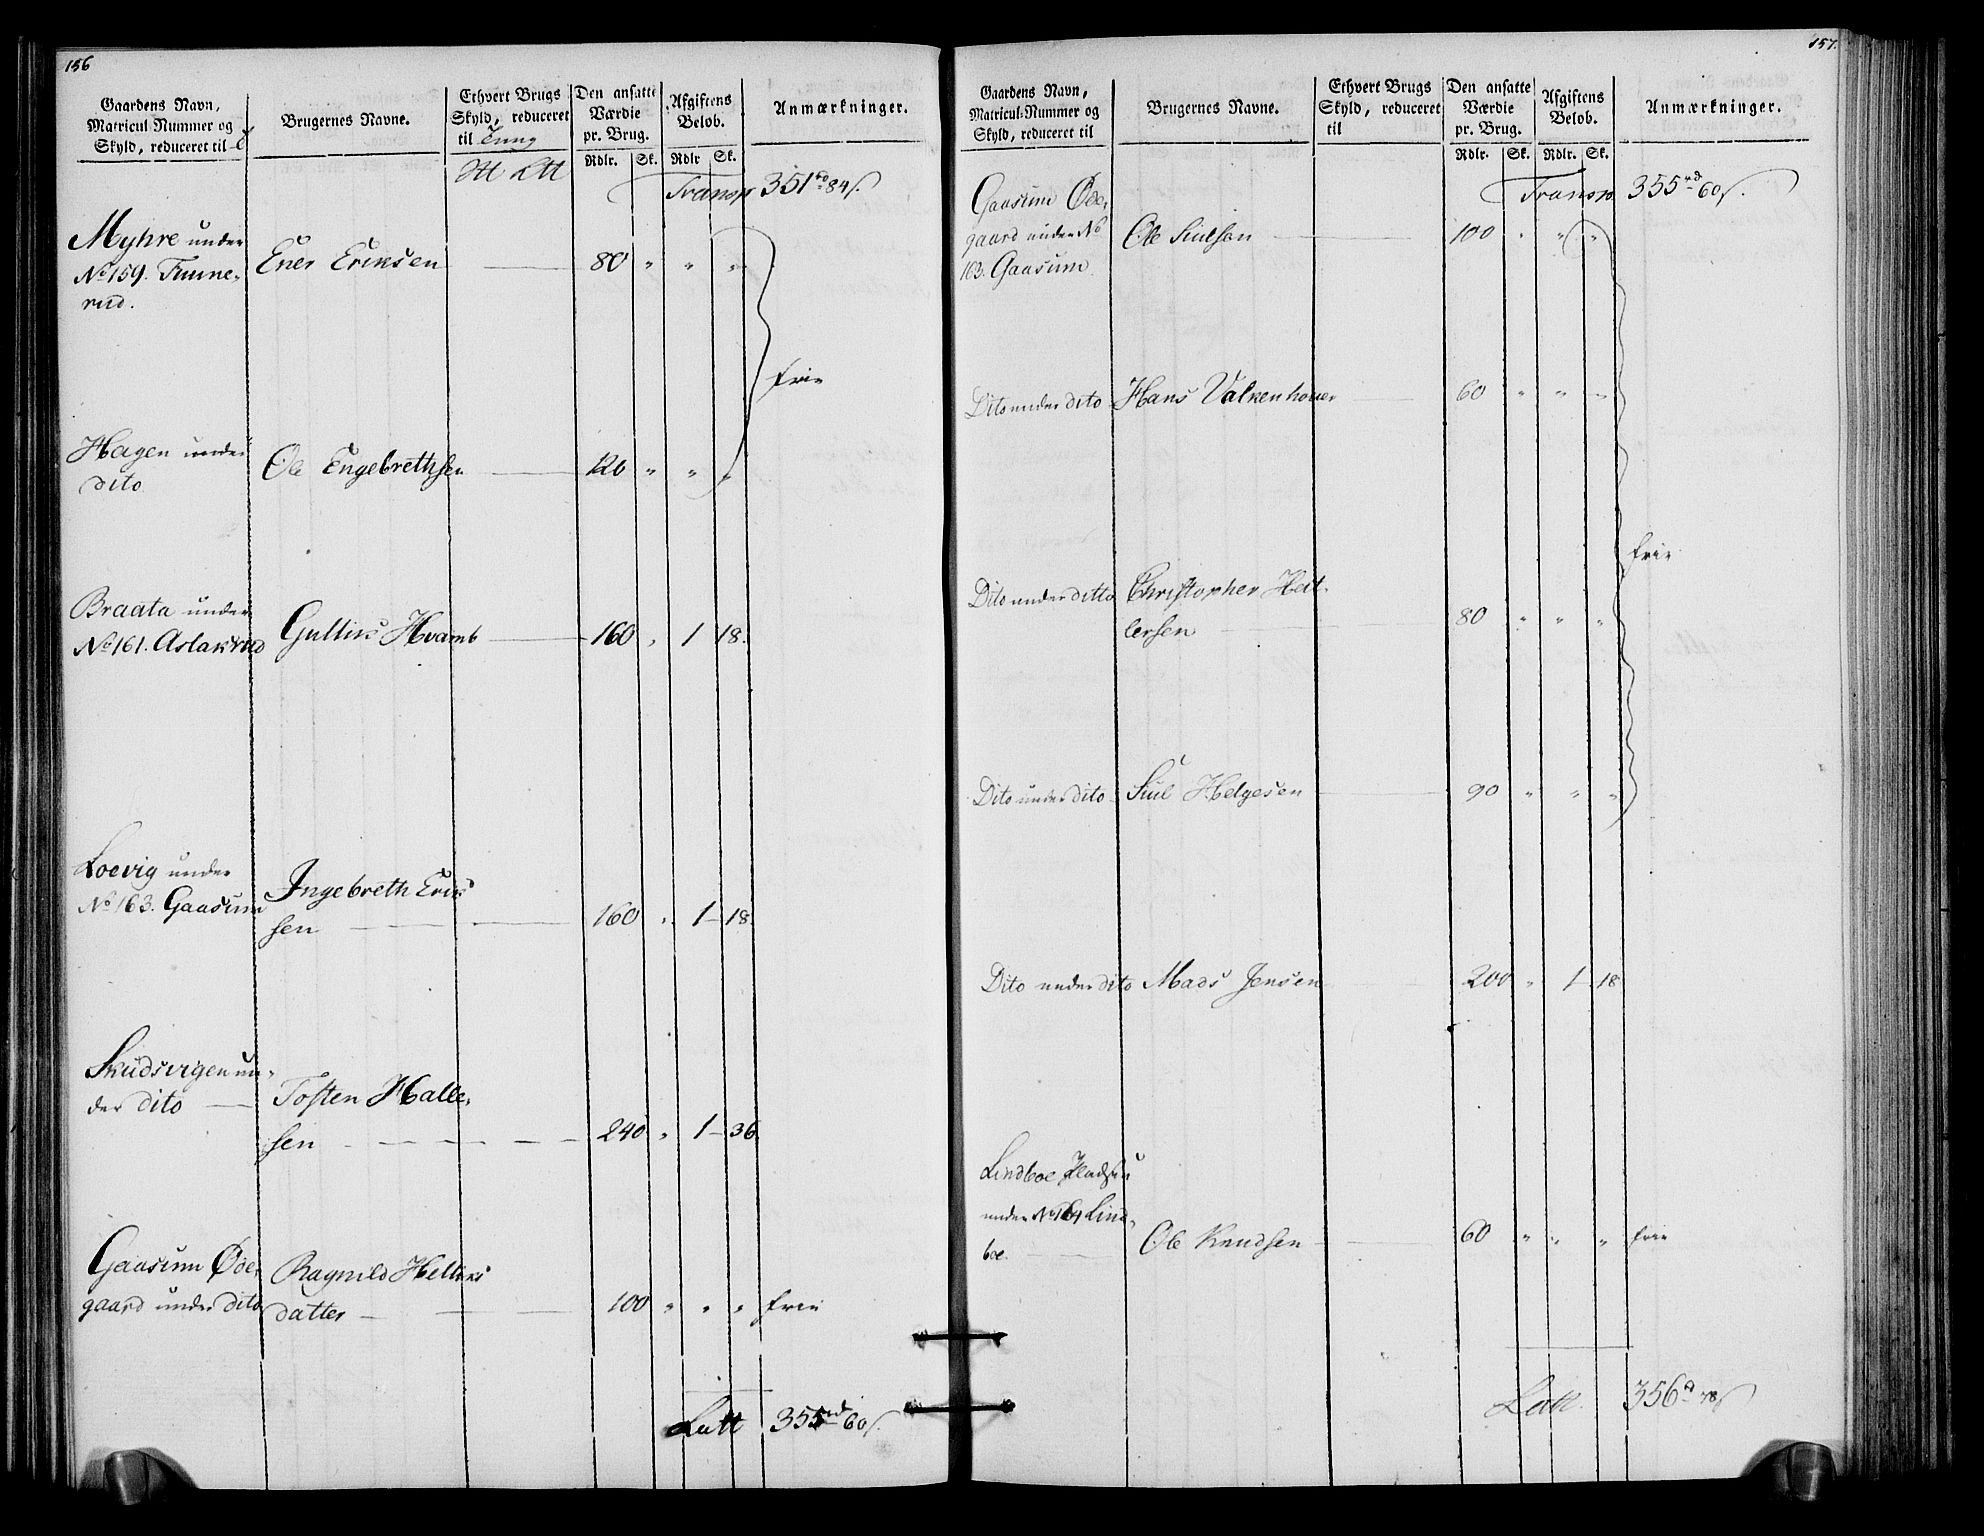 156
Gaardens Navn,
Matricul Nummer og
Skyld, reduceret til
Brugernes Navne.
Ethvert Brugs
Skyld, reduceret
til Tung
Den ansatte
Værdie
pr. Brug.
Afgiftens
Belob.
Anmærkninger.
Rdlr. Sk. Rdlr Sk.
Transp 351 rd 84 s.
Myhre under
No 159. Finne-
rud.
Ener Eriksen 80 " " "
frie
Hagen under
dito
Ole Engebrethsen 120 " " "
Braata under
No 161. Aslakrud
Gullix Hvamb 160 " 1 18.
Loevig under
No 163. Gaasum
Ingebreth Erik
sen 160 " 1 - 18
Skudsvigen un-
der dito
Tosten Halle-
sen 240 " 1 - 36
Gaasum Øde-
gaard under dito
Ragnild Hellers
datter 100 " " " frie
Latt 355 rd 60 s.
157.
Gaardens Navn,
Matricul-Nummer og
Skyld, reduceret til
Brugernes Navne.
Ethvert Brugs
Skyld, reduceret
til
Den ansatte
Værdie
pr. Brug.
Afgiftens
Belob.
Anmærkninger.
Rdlr. Sk. Rdlr. Sk.
Transp 355 rd 60 s.
Gaasum Øde-
gaard under No
163. Gaasum
Ole Siulsen 100 " " "
Dito under dito Hans Valkenhouer 60 " " "
frie
Dito under ditto Christopher Hel-
lersen 80 " " "
Dito under dito Siul Helgesen 90 " " "
Dito under dito Mads Jensen 200 " 1 - 18
Lindboe Pladsen
under No 164 Lind-
boe.
Ole Knudsen 60 " " " frie
Latt 356 rd 78 s